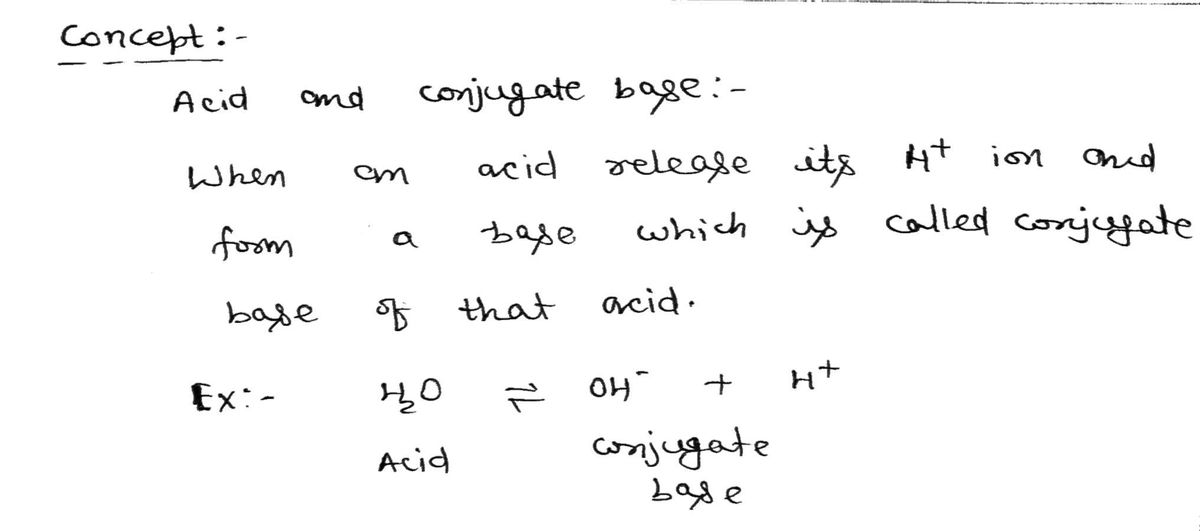 Concept :-
Acid and conjugate base :-
When an acid release its H⁺ ion and
form a base which is called conjugate
base of that acid.
Ex :- H₂O ⇌ OH⁻ + H⁺
Acid conjugate
base